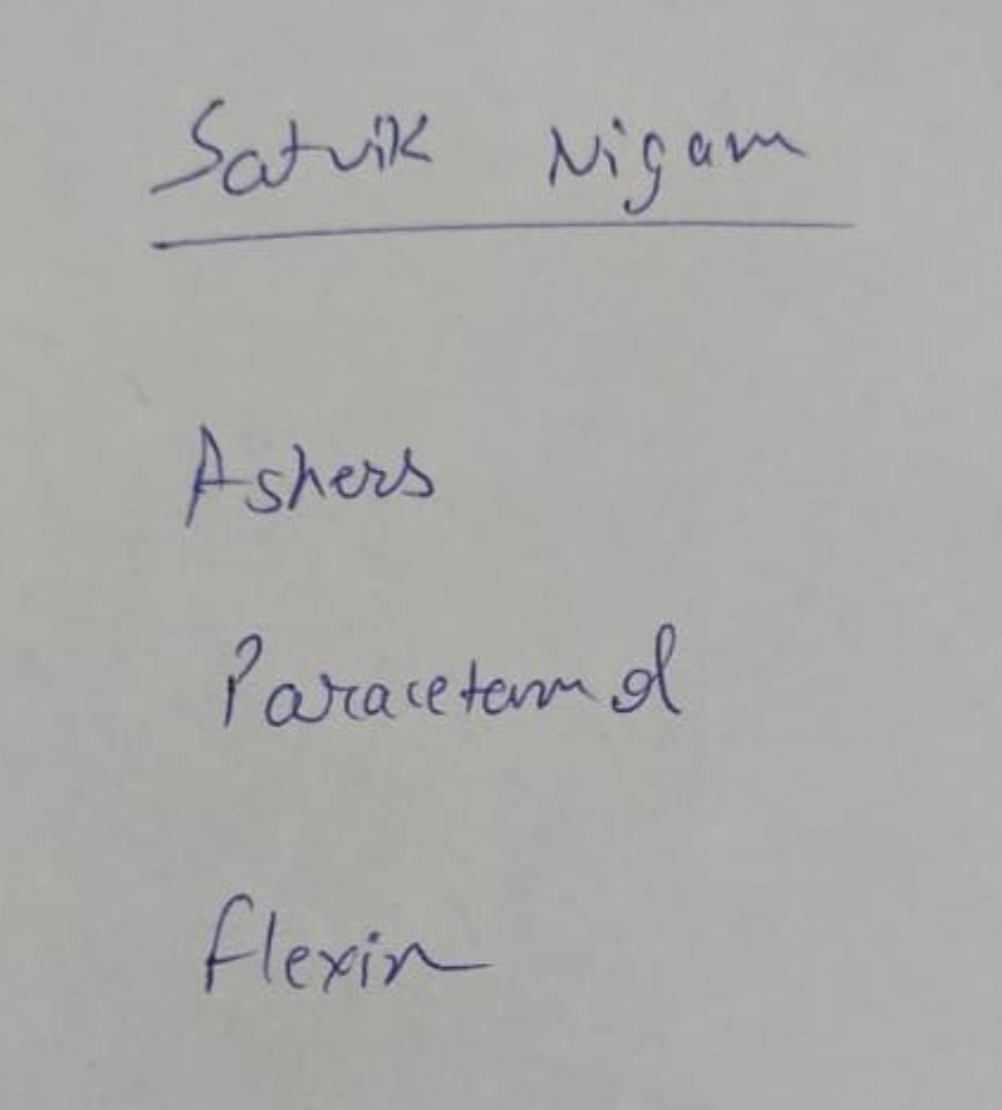 Satvik Nigam
Ashers
Paracetamol
flexin